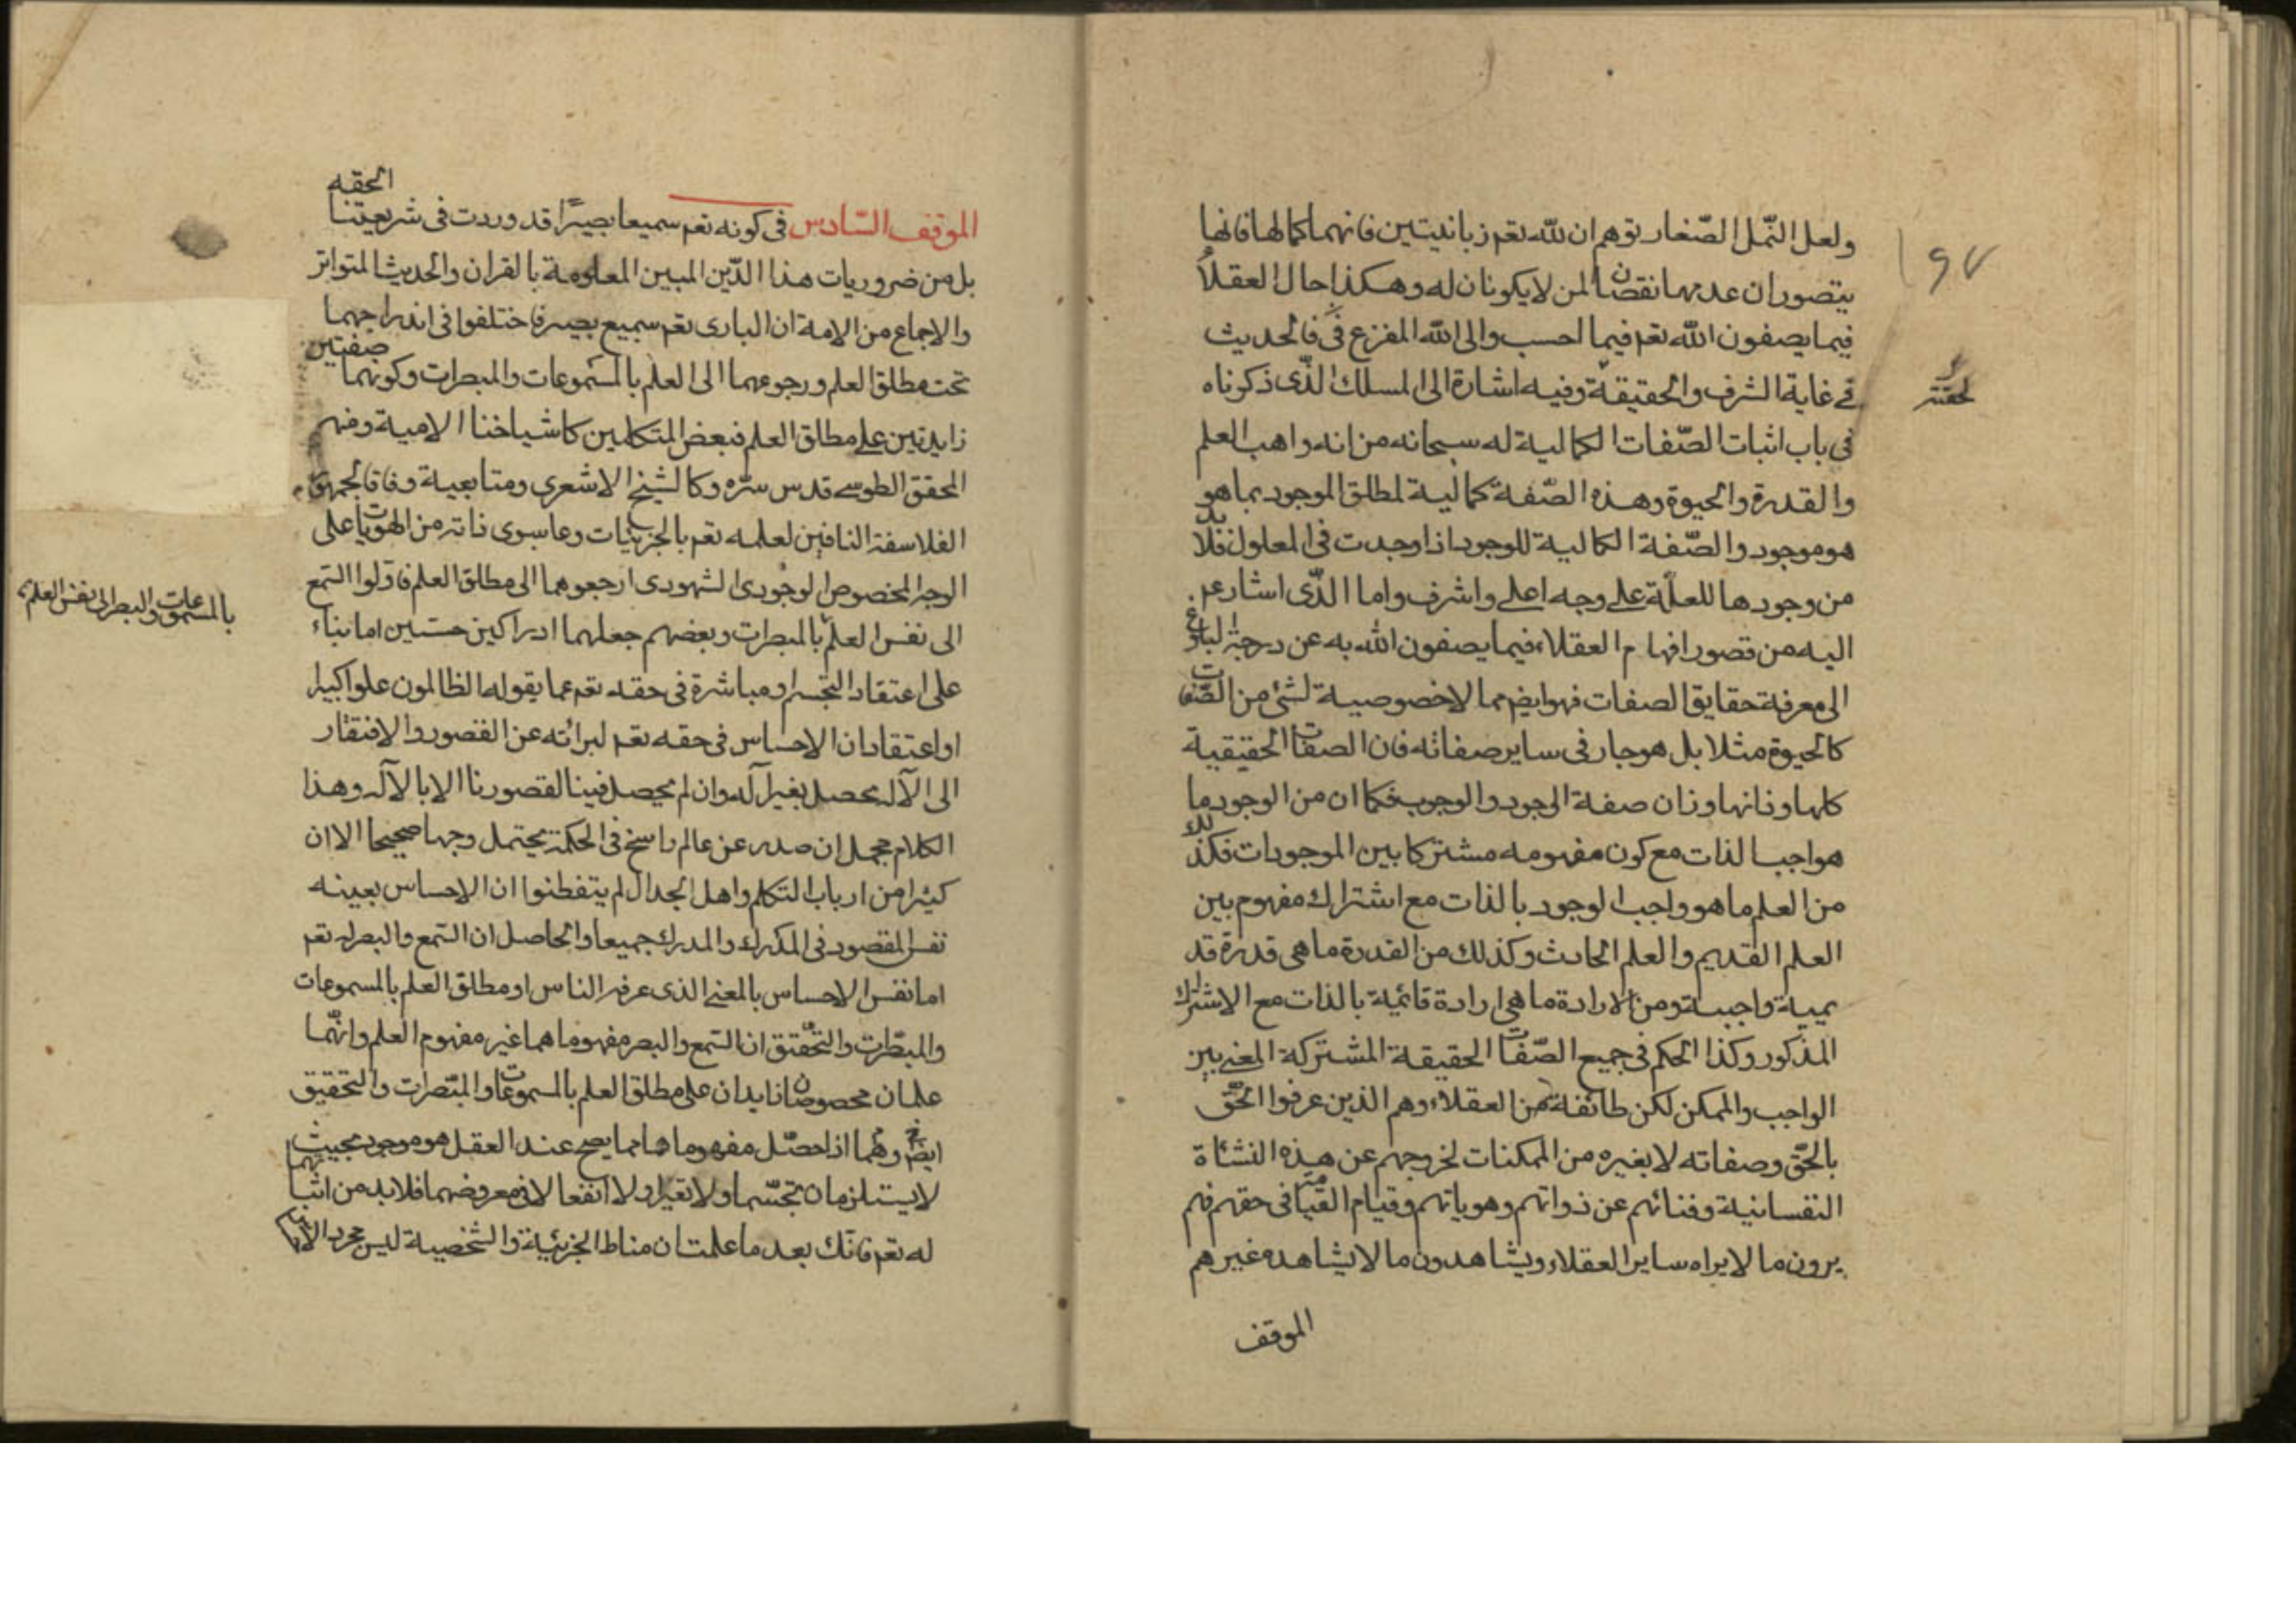 ولعل النّمل الصّغار توهم ان لله تعم زبانيتين فانهما كمالها فانها
يتصور ان عدمها نقصانا لمن لا يكونان له وهكذا حال العقلاء
فيما يصفون الله تعم فيما احسب والى الله المفزع فى فالحديث
فى غاية الشرف والحقيقة وفيه اشارة الى المسلك الذّى ذكرناه
فى باب اثبات الصّفات الكمالية له سبحانه من انه واهب العلم
والقدرة والحيوة وهذه الصّفة كمالية لمطلق الموجود بما هو
هو موجود والصّفة الكمالية للموجود اذا وجدت فى المعلول فلا بد
من وجودها للعلّة على وجه اعلى واشرف واما الذّى اشار عم
اليه من قصور افهام العقلاء فيما يصفون الله به عن درجة البلوغ
الى معرفة حقايق الصفات فهو ايضم مما لا خصوصية لشئ من الصّفات
كالحيوة مثلا بل هو جار فى ساير صفاته فان الصفات الحقيقية
كلها وزانها وزان صفة الوجود والوجوب فكما ان من الوجود ما
هو اجب الذات مع كون مفهومه مشتركا بين الموجودات فكذلك
من العلم ما هو واجب الوجود بالذات مع اشتراك مفهوم بين
العلم القديم والعلم الحادث وكذلك من القدرة ما هى قدرة قد
يمية واجبة ومن الارادة ما هى ارادة قائمية بالذات مع الاشتراك
المذكور وكذا الحكم فى جميع الصّفات الحقيقة المشتركة المعنى بين
الواجب والممكن لكن طائفة من العقلاء وهم الذين عرفوا الحّق
بالحّق وصفاته لا بغيره من الممكنات لخروجهم عن هذه النشئاة
النفسانية وفنائهم عن ذواتهم وهوياتهم وقيام القيامة فى حقهم فهم
يرون ما لا يراه ساير العقلاء ويشاهدون ما لا يشاهده غيرهم
الموقف
٩٧
الموقف السّادس فى كونه تعم سميعا بصيرًا قد وردت فى شريعتنا الحقه
بل من ضروريات هذا الدّين المبين المعلومة بالقران والحديث المتواتر
والاجماع من الامة ان البارى تعم سميع بصير فاختلفوا فى اندراجهما
تحت مطلق العلم ورجوعهما الى العلم بالمسموعات والمبصرات وكونهما صفتين
زايدتين على مطلق العلم فبعض المتكلمين كاشياخنا الامية ومنهم
المحقق الطوسى قدس سّره وكالشيخ الاشعرى ومتابعية وفاقا لجمهور
الفلاسفة النافين لعلمه تعم بالجزئيات وعا سوى ذاته من الهويات على
الوجه المخصوص الوجودى الشهودى ارجعوهما الى مطلق العلم فاوّلوا السّمع
الى نفس العلم بالمبصرات وبعضهم جعلهما ادراكين حسّيين اما بناء
على اعتقاد التجسم او مباشرة فى حقه تعم عما يقوله الظالمون علوا كبيرا
او اعتقاد ان الاحساس فى حقه تعم لبرائه عن القصور والافتقار
الى الآلة يحصل بغير آلة وان لم يحصل فينا لقصورنا الا بالآلة وهذا
الكلام مجمل ان صدر عن عالم راسخ فى الحكمة يحتمل وجها صحيحا الا ان
كثيرا من ارباب التكلم واهل الجدال لم يتفطنوا ان الاحساس بعينه
نفس المقصور فى المدرك والمدرك جميعا والحاصل ان السّمع والبصر له تعم
اما نفس الاحساس بالمعنى الذى عرفه الناس او مطلق العلم بالمسموعات
والمبصّرات والتحّقيق ان السّمع والبصر مفهوما هما غير مفهوم العلم وانّهما
علمان مخصوصان زايدان على مطلق العلم بالمسموعات والمبّصرات والتحقيق
ايضم وهّما اذا حصّل مفهوما هما مما يصح عند العقل هو موجود بحيث
لا يستلزمان تجسّما ولا تغيرا ولا انفعالا فى معروضهما فلا بد من اثباتهما
له تعم فانّك بعد ما علمت ان مناط الجزئية والشخصية ليس مجرد الاحساس
بالمسموعات والبصر الى نفس العلم